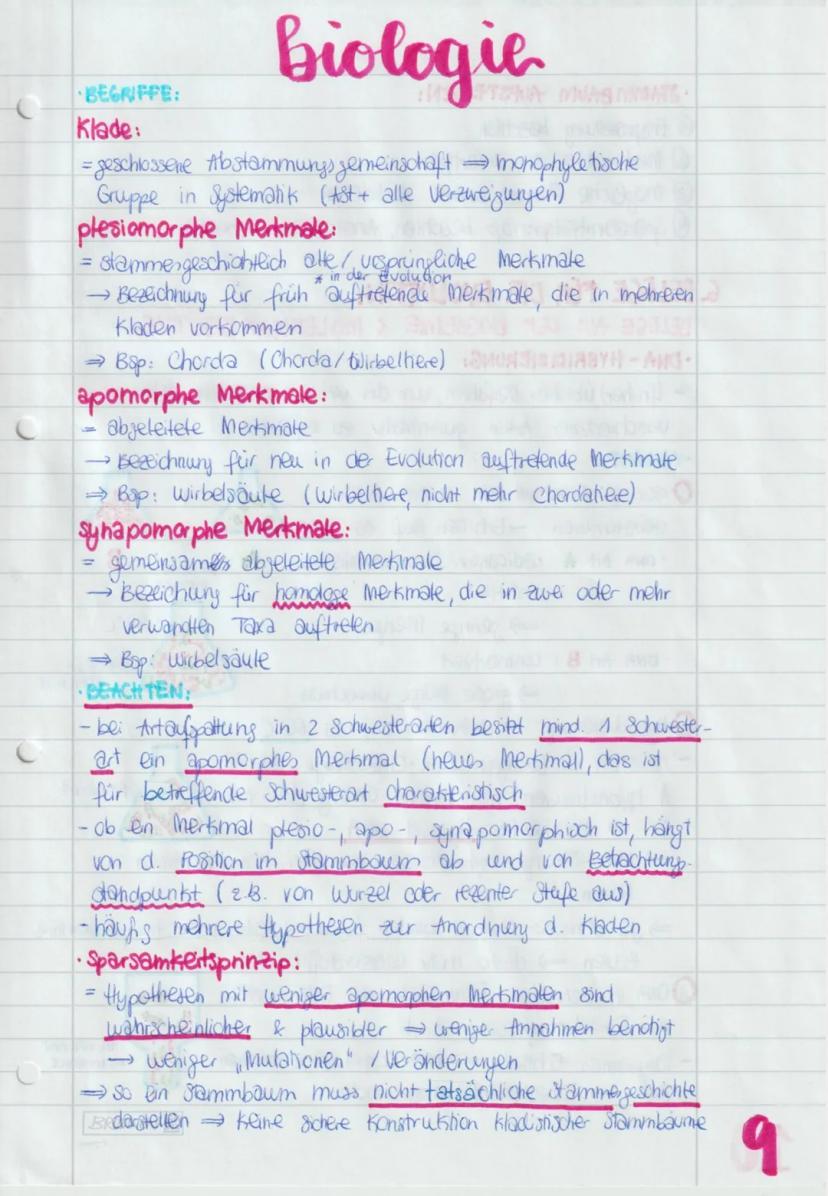 Biologie
·BEGRIFFE:
Klade:
= geschlossene Abstammungsgemeinschaft ⇒ monophyletische
Gruppe in Systematik (Ast + alle Verzweigungen)
plesiomorphe Merkmale:
= stammesgeschichtlich alte / ursprüngliche Merkmale
* in der Evolution
→ Bezeichnung für früh * auftretende Merkmale, die in mehreren
Kladen vorkommen
⇒ Bsp: Chorda (Chorda/Wirbeltiere)
apomorphe Merkmale:
= abgeleitete Merkmale
→ Bezeichnung für neu in der Evolution auftretende Merkmale
⇒ Bsp: Wirbelsäule (Wirbeltiere, nicht mehr Chordatiere)
synapomorphe Merkmale:
= gemeinsame abgeleitete Merkmale
→ Bezeichung für homologe Merkmale, die in zwei oder mehr
verwandten Taxa auftreten
⇒ Bsp: Wirbelsäule
·BEACHTEN:
- bei Artaufspaltung in 2 Schwesterarten besitzt mind. 1 Schwester-
art ein apomorphes Merkmal (neues Merkmal), das ist
für betreffende Schwesterart charakteristisch
- ob ein Merkmal plesio-, apo-, synapomorphisch ist, hängt
von d. Position im Stammbaum ab und von Betrachtungs-
standpunkt (z.B. von Wurzel oder rezenter Stufe aus)
- häufig mehrere Hypothesen zur Anordnung d. Kladen
· Sparsamkeitsprinzip:
= Hypothesen mit weniger apomorphen Merkmalen sind
wahrscheinlicher & plausibler ⇒ weniger Annahmen benötigt
→ weniger „Mutationen" / Veränderungen
⇒ so ein Stammbaum muss nicht tatsächliche Stammesgeschichte
darstellen ⇒ keine sichere Konstruktion kladistischer Stammbäume
9